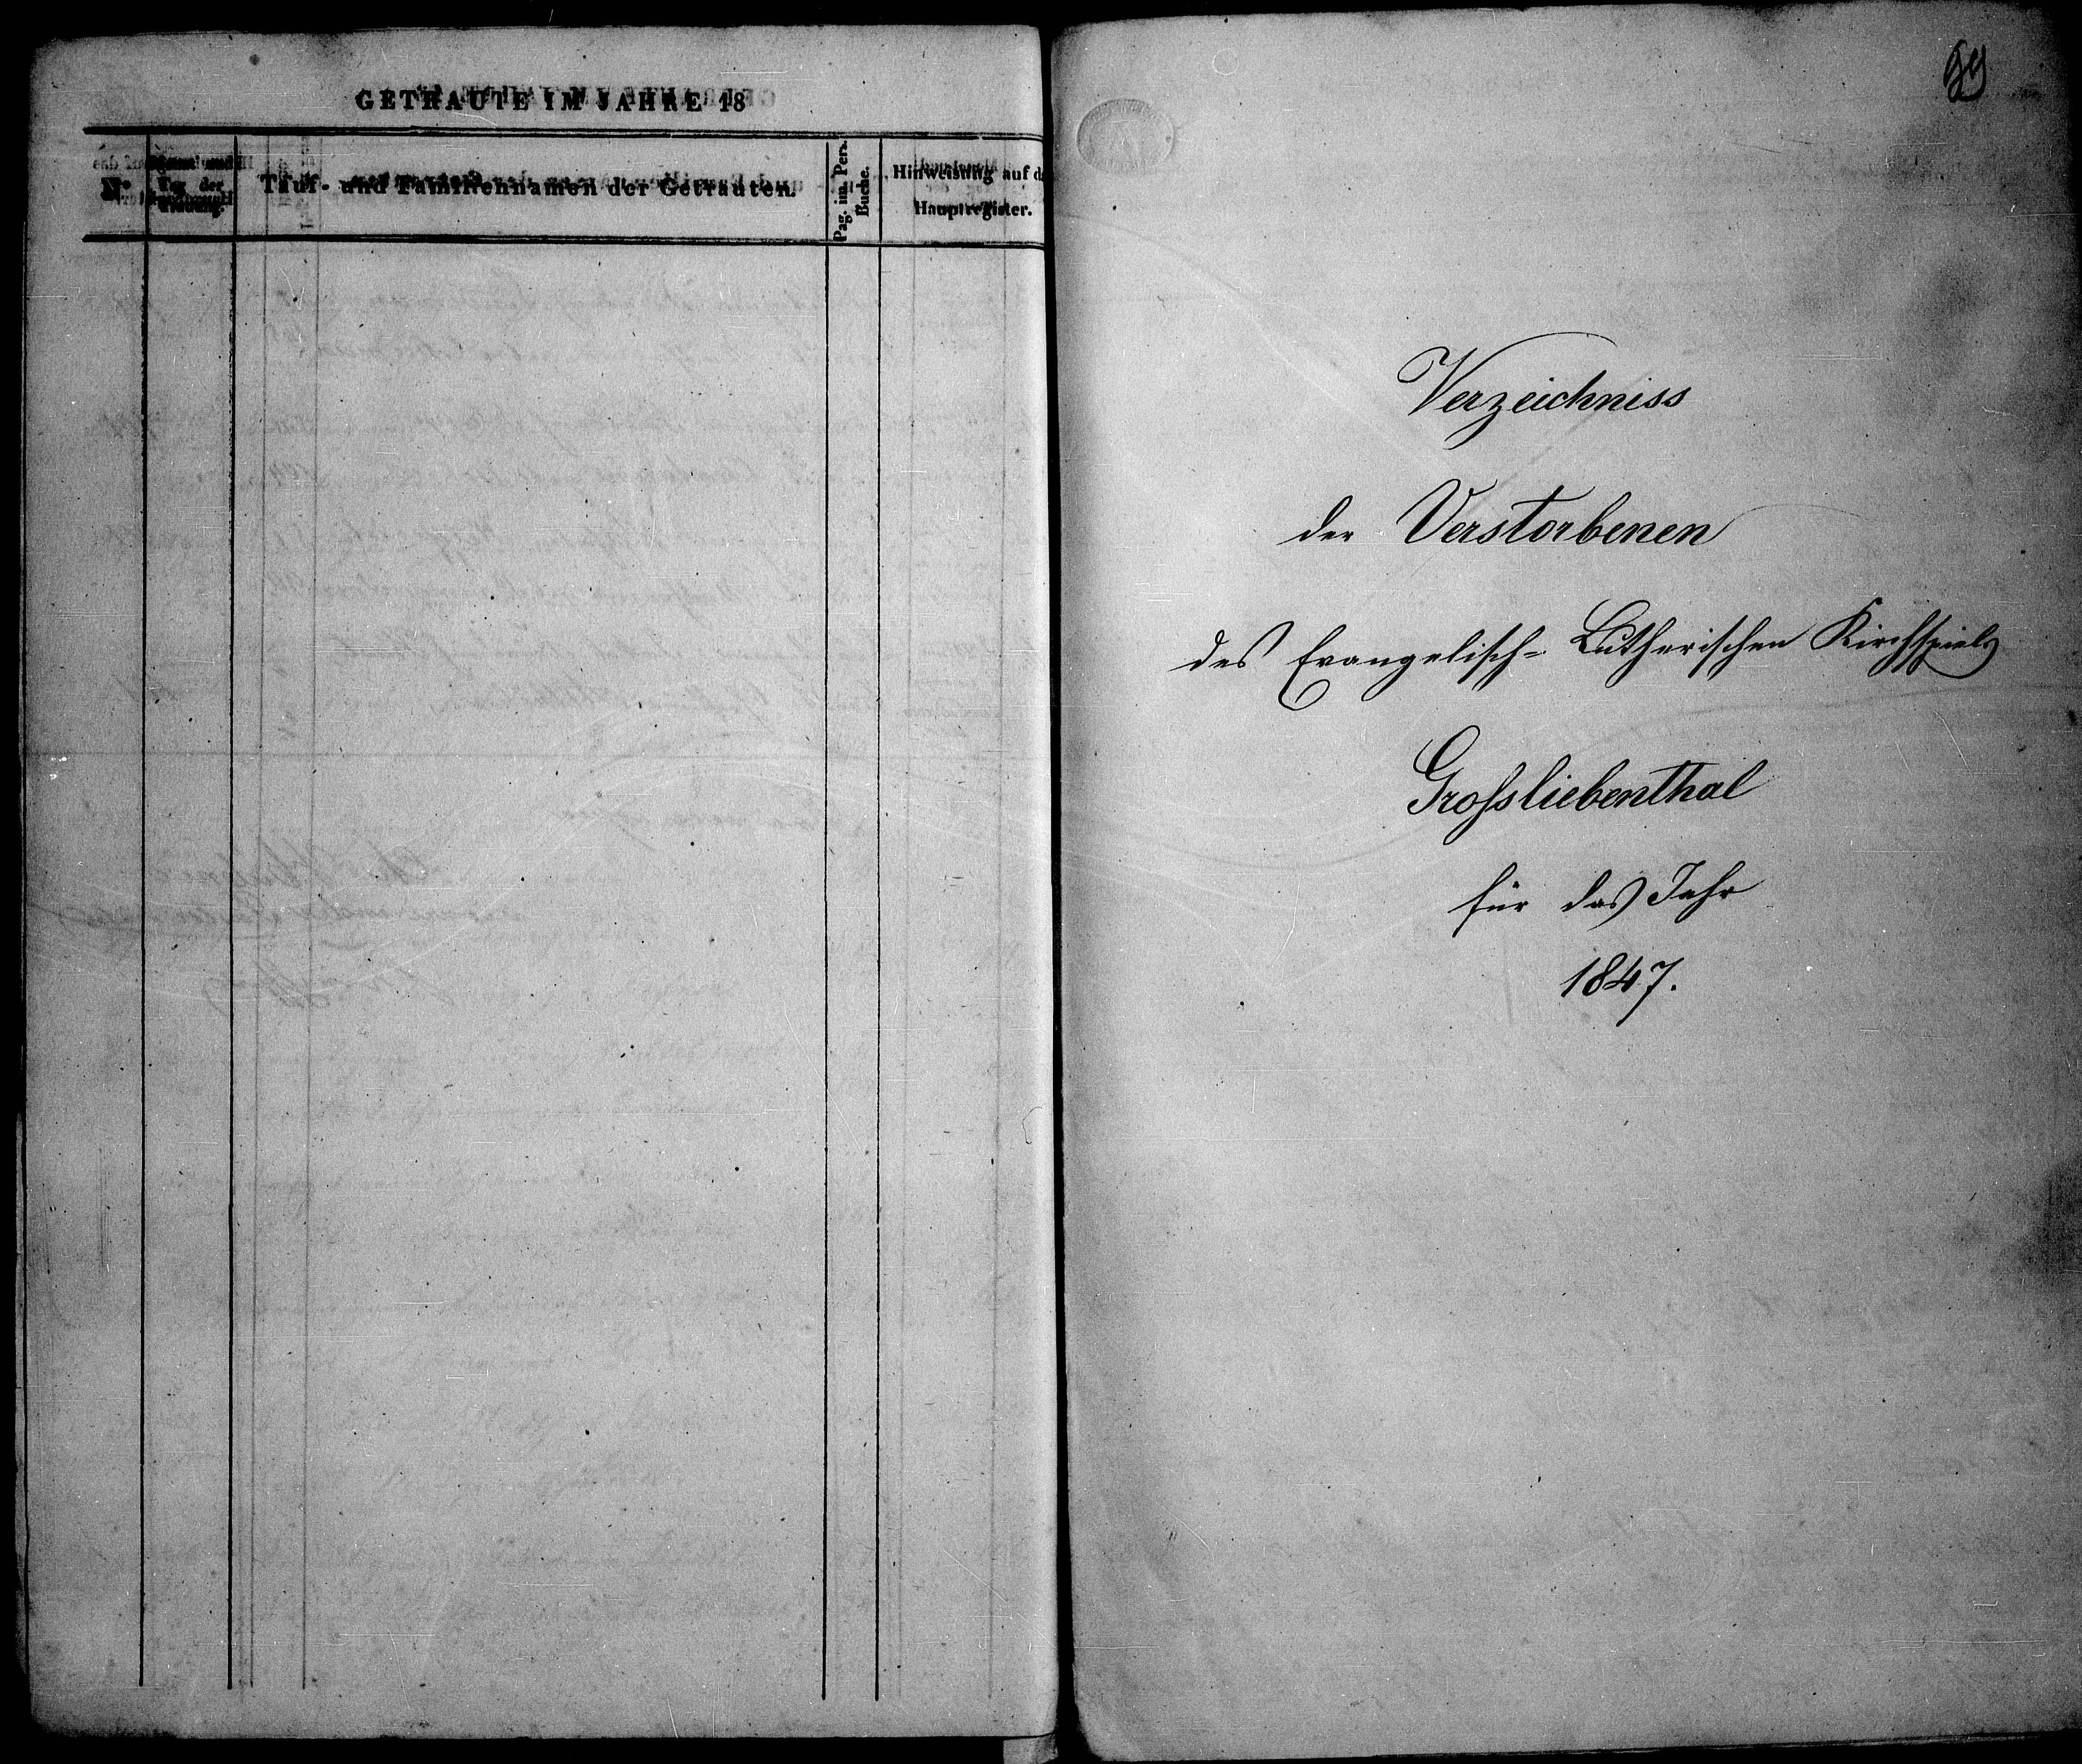 GETRAUTE IM JAHRE 18
No
Tag der
Trauung.
Tauf- und Familiennamen der Getrauten.
Pag. im Pers.
Buche.
Hinweisung auf d
Hauptregister.
Verzeichniss
der Verstorbenen
des Evangelisch= Lutherischen Kirchspiels
Grossliebenthal
für das Jahr
1847.